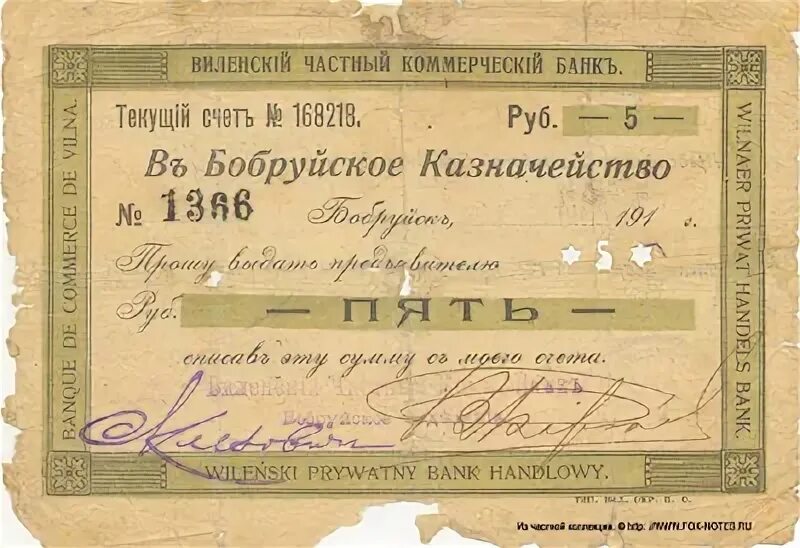 ВИЛЕНСКІЙ ЧАСТНЫЙ КОММЕРЧЕСКІЙ БАНКЪ.
Текущій счетъ № 168218. Руб. — 5 —
Въ Бобруйское Казначейство
№ 1366 Бобруйскъ, 191 г.
Прошу выдать предъявителю * 5 *
Руб. — ПЯТЬ —
списавъ эту сумму съ моего счета.
Виленскій
Бобруйское
BANQUE DE COMMERCE DE VILNA.
WILNAER PRIWAT HANDELS BANK.
WILEŃSKI PRYWATNY BANK HANDLOWY.
Из частной коллекции. © http: